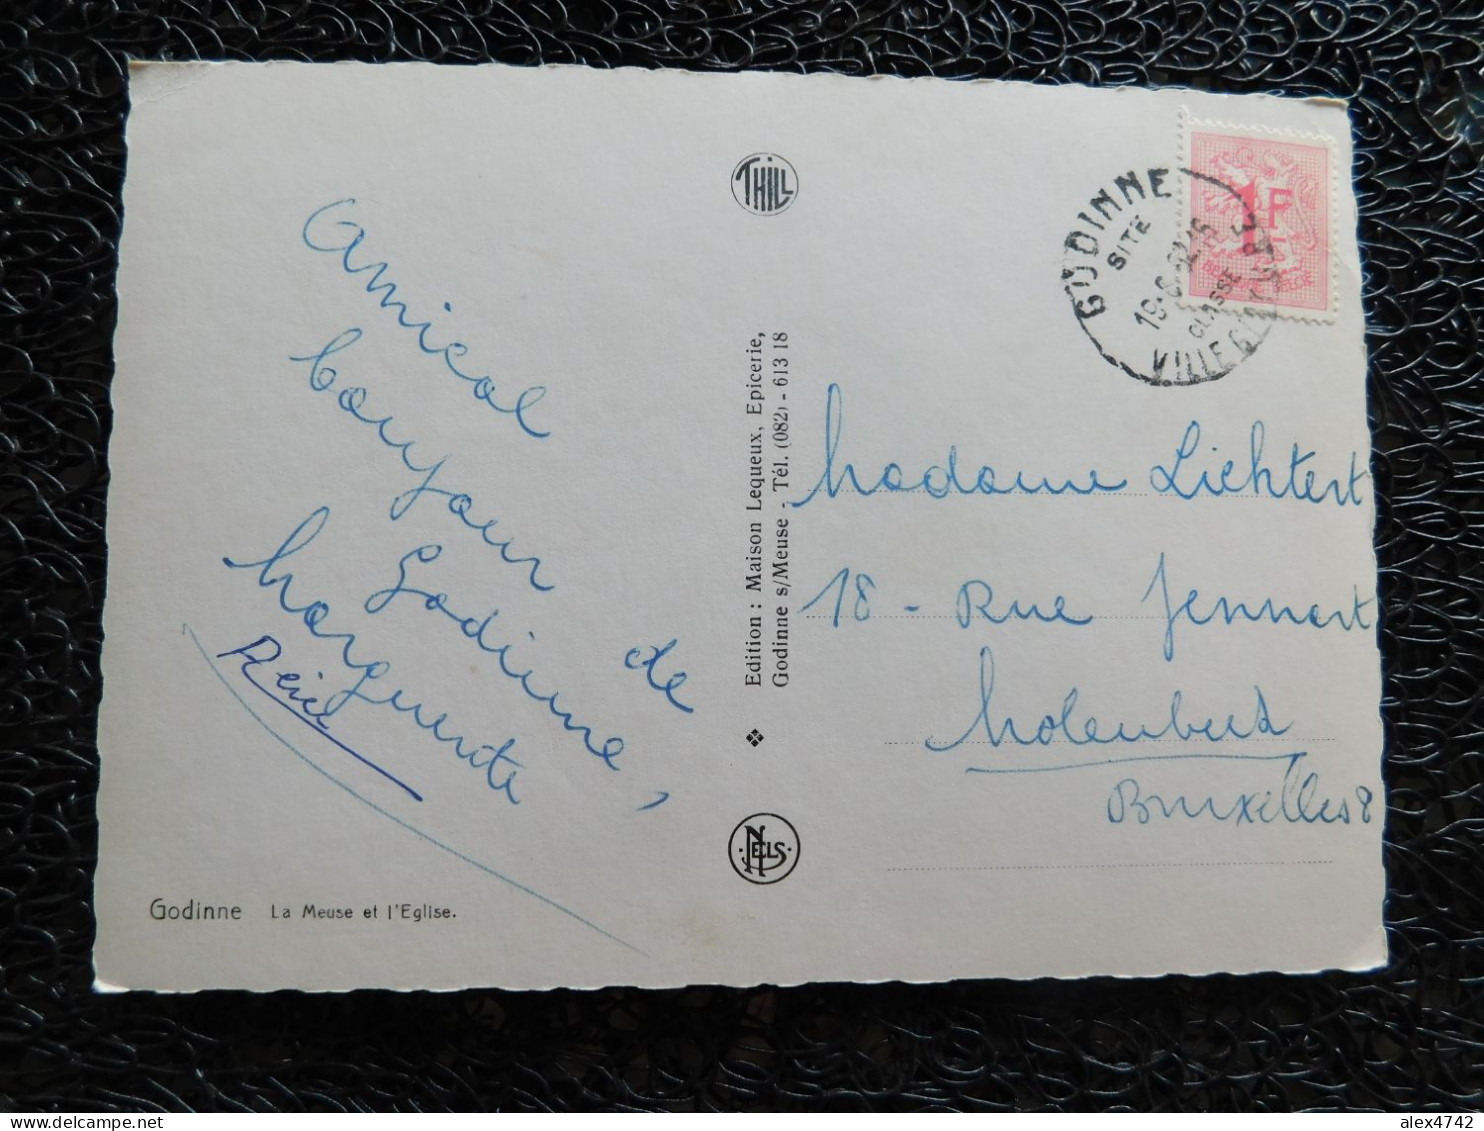 Amical
bonjour
de
Godinne,
Marguerite
THILL
Edition : Maison Lequeux, Epicerie,
Godinne s/Meuse - Tél. (082) - 613 18
NELS
Godinne La Meuse et l'Eglise.
GODINNE
SITE
CLASSE
VILLEGIATURE
1F
BELGIE-BELGIQUE
Madame Lichtert
18 - Rue Jennart
Molenbeek
Bruxelles 8
alex4742